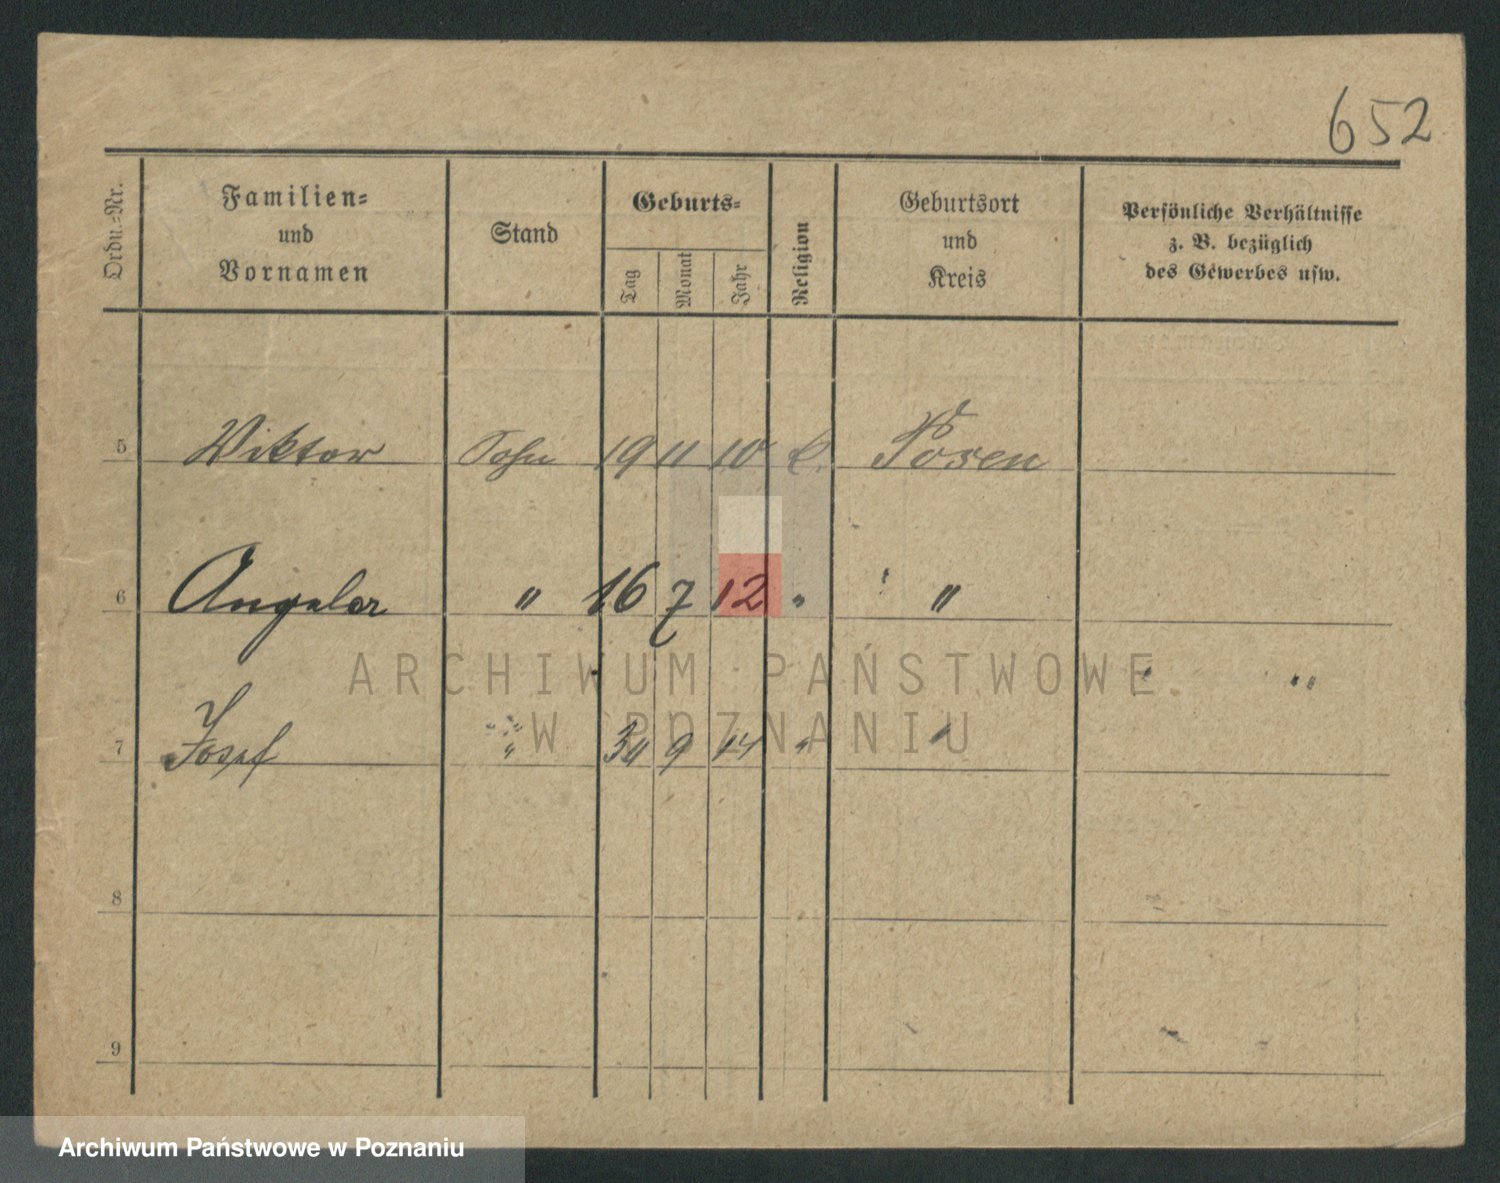 652
Ordn.=Nr.
Familien=
und
Vornamen
Stand
Geburts=
Tag
Monat
Jahr
Religion
Geburtsort
und
Kreis
Persönliche Verhältnisse
z. B. bezüglich
des Gewerbes usw.
5 Wiktor Sohn 19 11 10 k. Posen
6 " 16 7 12 " "
7 Josef " 9 14 " "
8
9
ARCHIWUM PAŃSTWOWE
W POZNANIU
Archiwum Państwowe w Poznaniu